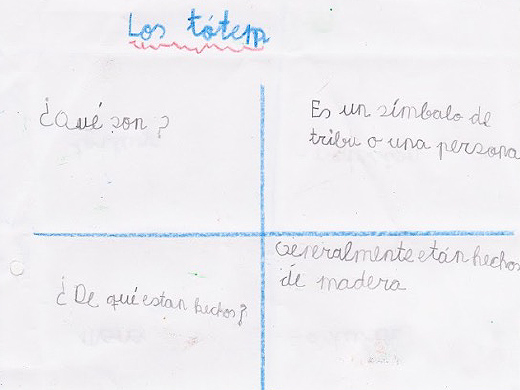 Los tótem
¿Qué son?
Es un símbalo de
tribu o una persona
¿De qué estan hechos?
Generalmente etán hechos
de madera